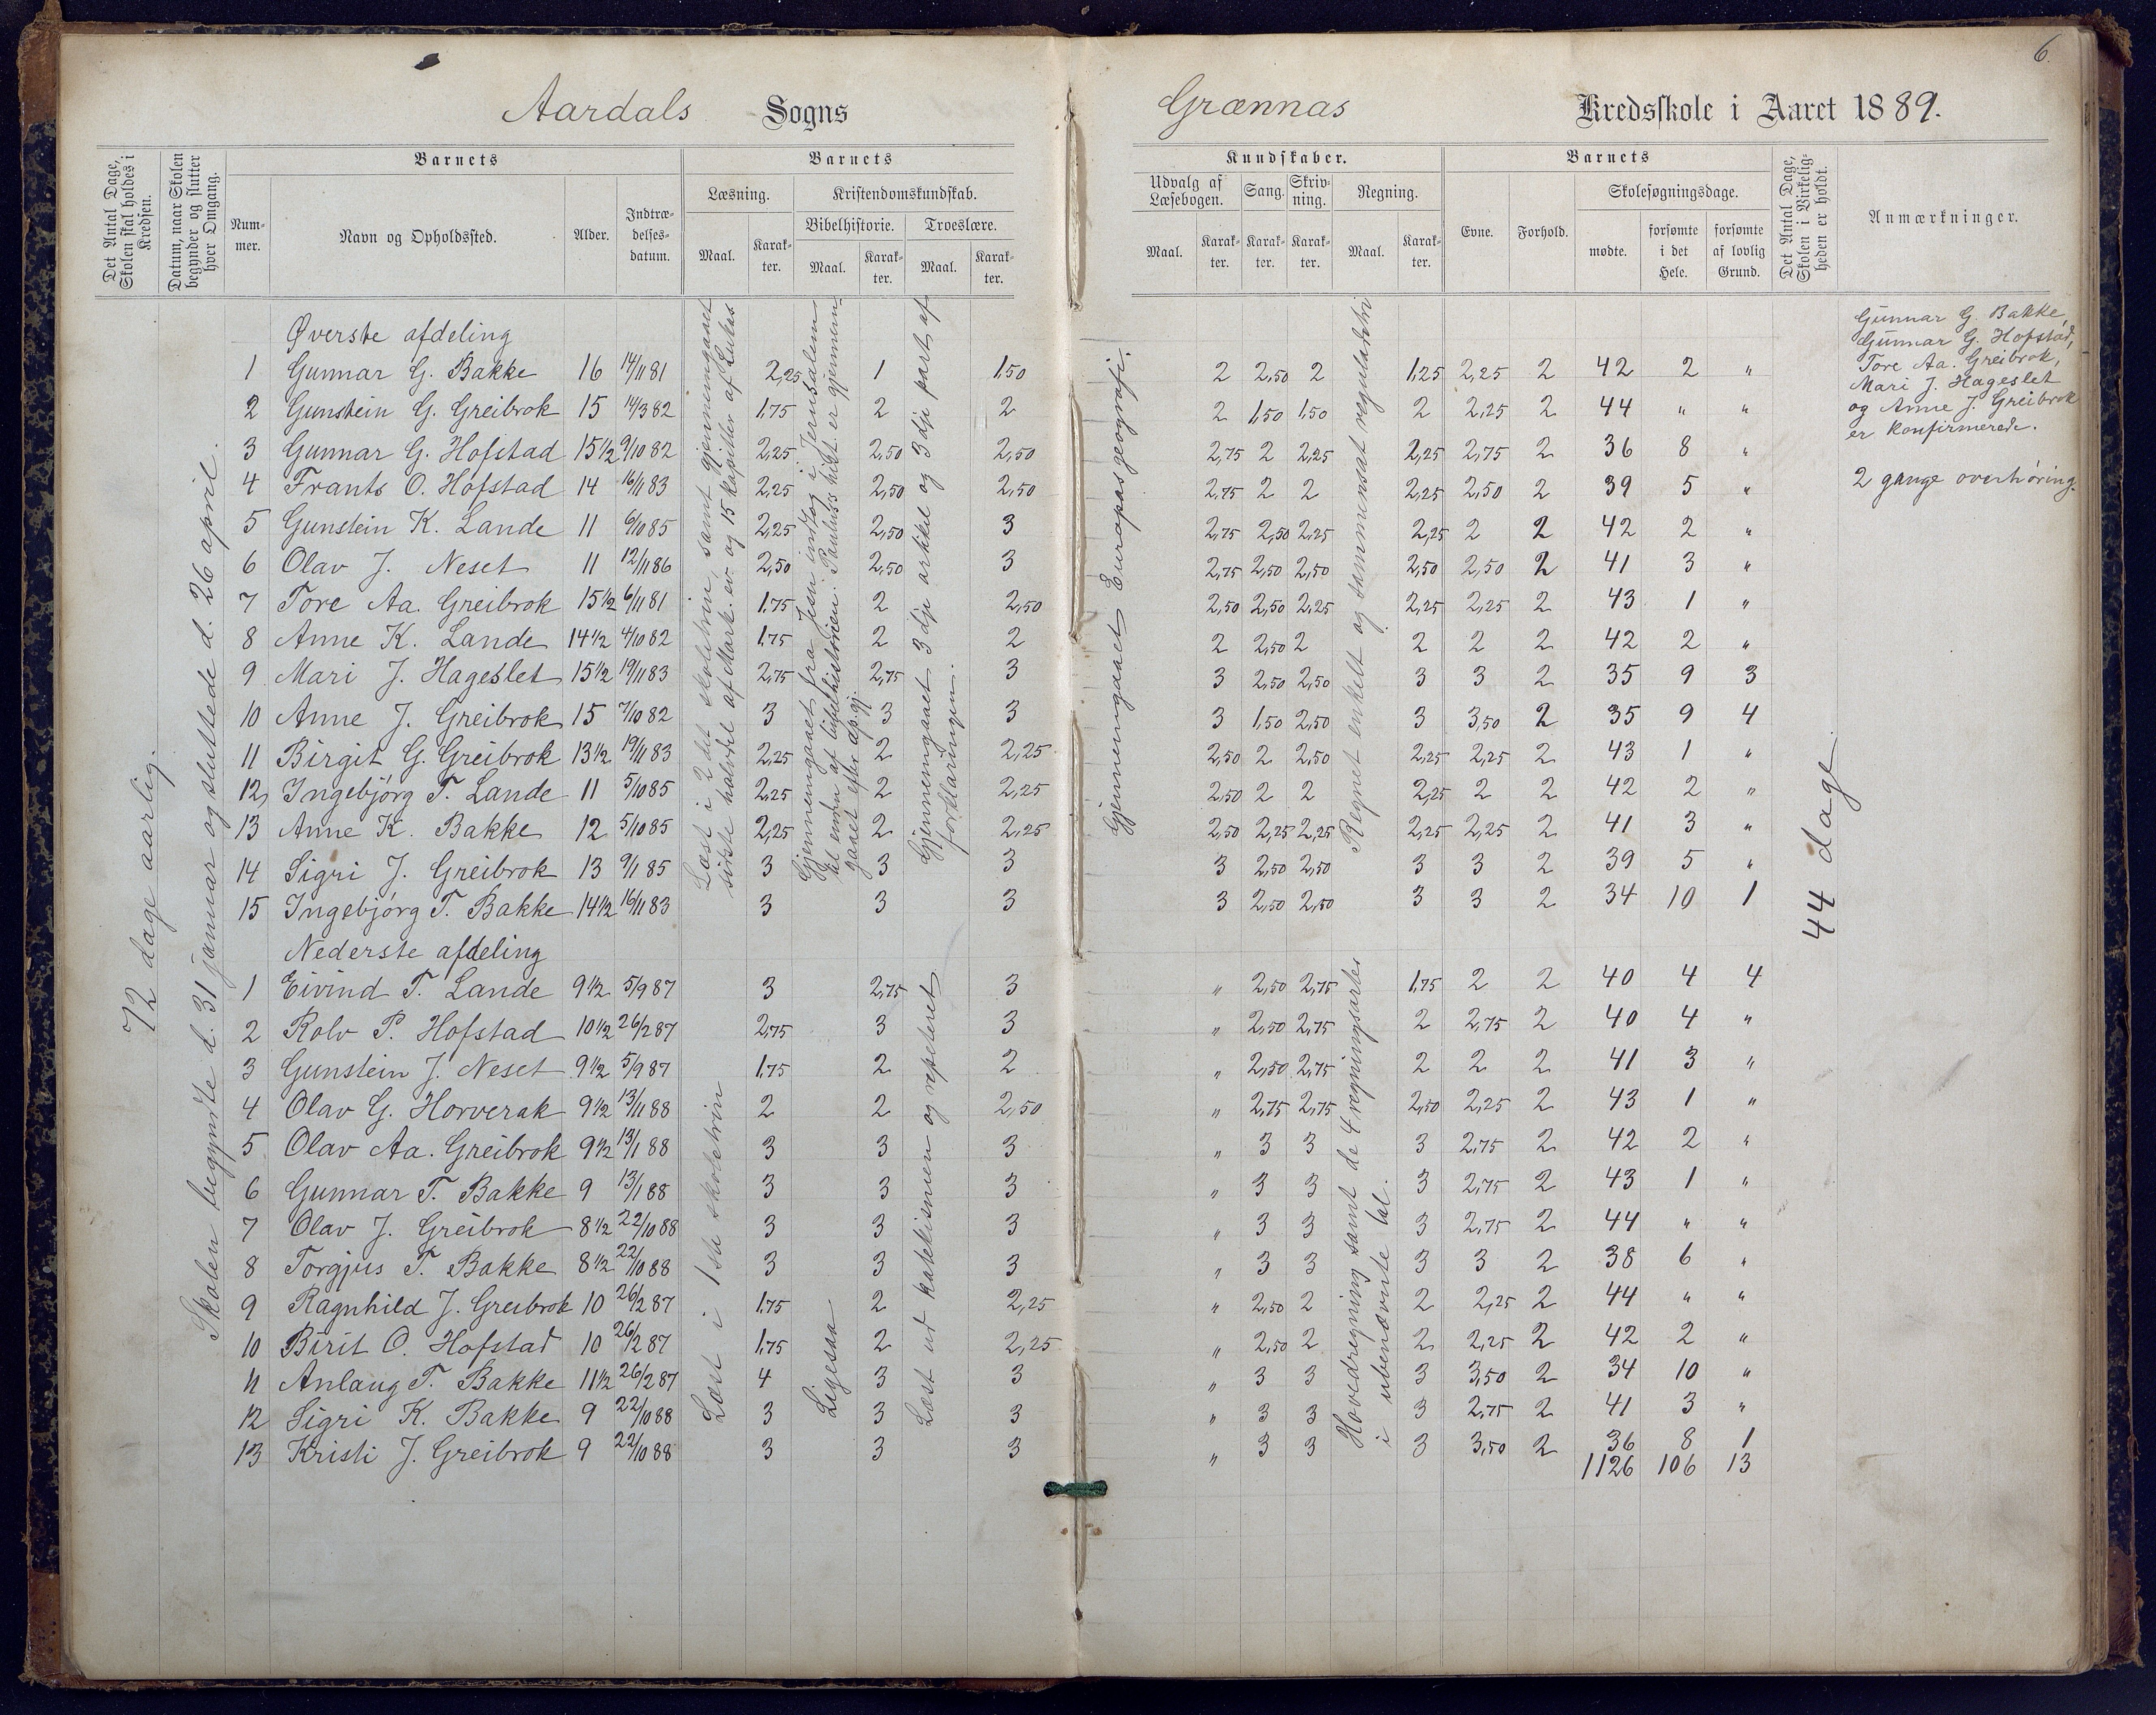 6.
Aardals Sogns Grænnas Kredsskole i Aaret 1889.
Det Antal Dage, Skolen skal holdes i Kredsen.
Datum, naar Skolen begynder og slutter hver Omgang.
Barnets
Nummer.
Navn og Opholdssted.
Alder.
Indtrædelsesdatum.
Barnets
Læsning.
Maal.
Karakter.
Kristendomskundskab.
Bibelhistorie.
Maal.
Karakter.
Troeslære.
Maal.
Karakter.
Kundskaber.
Udvalg af Læsebogen.
Maal.
Karakter.
Sang.
Karakter.
Skrivning.
Karakter.
Regning.
Maal.
Karakter.
Barnets
Evne.
Forhold.
Skolesøgningsdage.
mødte.
forsømte i det Hele.
forsømte af lovlig Grund.
Det Antal Dage, Skolen i Virkeligheden er holdt.
Anmærkninger.
72 dage aarlig.
Skolen begyndte d. 31 januar og sluttede d. 26 april.
Øverste afdeling
1 Gunnar G. Bakke 16 14/11 81 2,25 1 1,50 2 2,50 2 1,25 2,25 2 42 2 "
2 Gunstein G. Greibrok 15 14/3 82 1,75 2 2 2 1,50 1,50 2 2,25 2 44 " "
3 Gunnar G. Hofstad 15 1/2 9/10 82 2,25 2,50 2,50 2,75 2 2,25 2,25 2,75 2 36 8 "
4 Frants O. Hofstad 14 16/11 83 2,25 2,50 2,50 2,75 2 2 2,25 2,50 2 39 5 "
5 Gunstein K. Lande 11 6/10 85 2,25 2,50 3 2,75 2,50 2,25 2,25 2 2 42 2 "
6 Olav J. Neset 11 12/11 86 2,50 2,50 3 2,75 2,50 2,50 2,50 2,50 2 41 3 "
7 Tore Aa. Greibrok 15 1/2 6/11 81 1,75 2 2,50 2,50 2,50 2,25 2,25 2,25 2 43 1 "
8 Anne K. Lande 14 1/2 4/10 82 1,75 2 2 2 2,50 2 2 2 2 42 2 "
9 Mari J. Hageslet 15 1/2 19/11 83 2,75 2,75 3 3 2,50 2,50 3 3 2 35 9 3
10 Anne J. Greibrok 15 7/10 82 3 3 3 3 1,50 2,50 3 3,50 2 35 9 4
11 Birgit G. Greibrok 13 1/2 19/11 83 2,25 2 2,25 2,50 2 2,50 2,25 2,25 2 43 1 "
12 Ingebjørg T. Lande 11 5/10 85 2,25 2 2,25 2,50 2 2 2,25 2 2 42 2 "
13 Anne K. Bakke 12 5/10 85 2,25 2 2,25 2,50 2,25 2,25 2,25 2,25 2 41 3 "
14 Sigri J. Greibrok 13 9/1 85 3 3 3 3 2,50 2,50 3 3 2 39 5 "
15 Ingebjørg T. Bakke 14 1/2 16/11 83 3 3 3 3 2,50 2,50 3 3 2 34 10 1
Læst i 2det skoletrin, samt gjennemgaaet
sidste halvdel af Mark. ev. og 15 kapitler af Lukas
Gjennemgaaet fra Jesu indtog i Jerusalem
til enden af bibelhistorien. Paulus's hist. er gjennem-
gaaet efter ap.gj.
Gjennemgaaet 3dje artikel og 3dje part af
forklaringen.
Gjennemgaaet Europas geografi.
Regnet enkelt og sammensat reguladetri
44 dage
Gunnar G. Bakke,
Gunnar G. Hofstad,
Tore Aa. Greibrok,
Mari J. Hageslet
og Anne J. Greibrok
er konfirmerede.
2 gange overhøring.
Nederste afdeling
1 Eivind T. Lande 9 1/2 5/9 87 3 2,75 3 " 2,50 2,75 1,75 2 2 40 4 4
2 Rolv P. Hofstad 10 1/2 26/2 87 2,75 3 3 " 2,50 2,75 2 2,75 2 40 4 "
3 Gunstein J. Neset 9 1/2 5/9 87 1,75 2 2 " 2,50 2,75 2 2 2 41 3 "
4 Olav G. Horverak 9 1/2 13/11 88 2 2 2,50 " 2,75 2,75 2,50 2,25 2 43 1 "
5 Olav Aa. Greibrok 9 1/2 13/1 88 3 3 3 " 3 3 3 2,75 2 42 2 "
6 Gunnar T. Bakke 9 13/1 88 3 3 3 " 3 3 3 2,75 2 43 1 "
7 Olav J. Greibrok 8 1/2 22/10 88 3 3 3 " 3 3 3 2,75 2 44 " "
8 Torgjus T. Bakke 8 1/2 22/10 88 3 3 3 " 3 3 3 3 2 38 6 "
9 Ragnhild J. Greibrok 10 26/2 87 1,75 2 2,25 " 2,50 2 2 2,25 2 44 " "
10 Birit O. Hofstad 10 26/2 87 1,75 2 2,25 " 2,50 2 2 2,25 2 42 2 "
11 Anlaug T. Bakke 11 1/2 26/2 87 4 3 3 " 3 3 3 3,50 2 34 10 "
12 Sigri K. Bakke 9 22/10 88 3 3 3 " 3 3 3 2,75 2 41 3 "
13 Kristi J. Greibrok 9 22/10 88 3 3 3 " 3 3 3 3,50 2 36 8 1
1126 106 13
Læst i 1ste skoletrin
Ligesaa
Læst ud katekismen og repeteret
Hovedregning samt de 4 regningsarter
i ubenævnte tal.